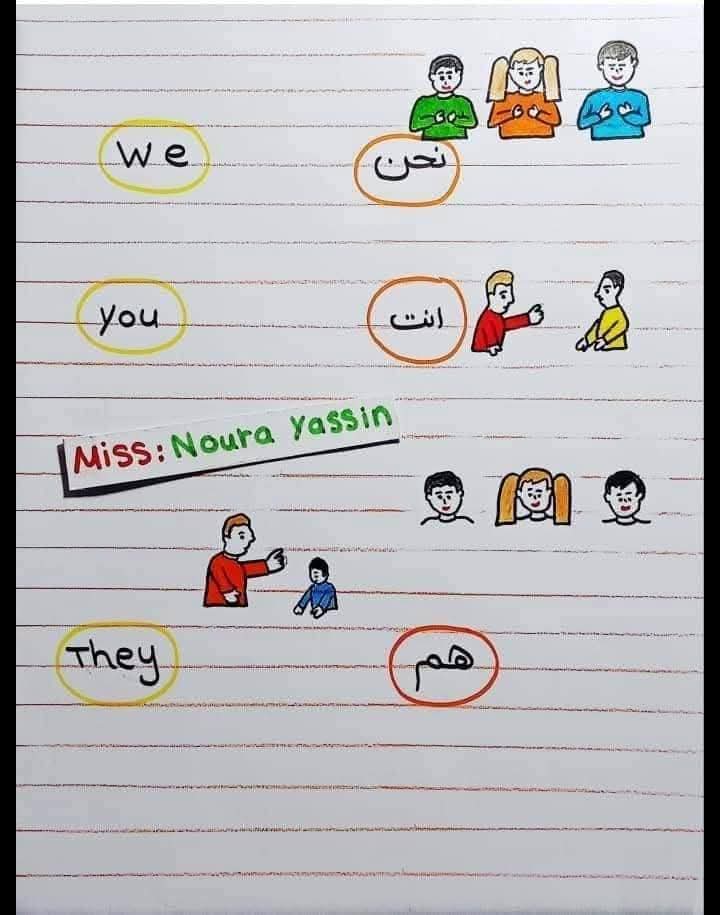 We نحن
you انت
Miss: Noura Yassin
They هم